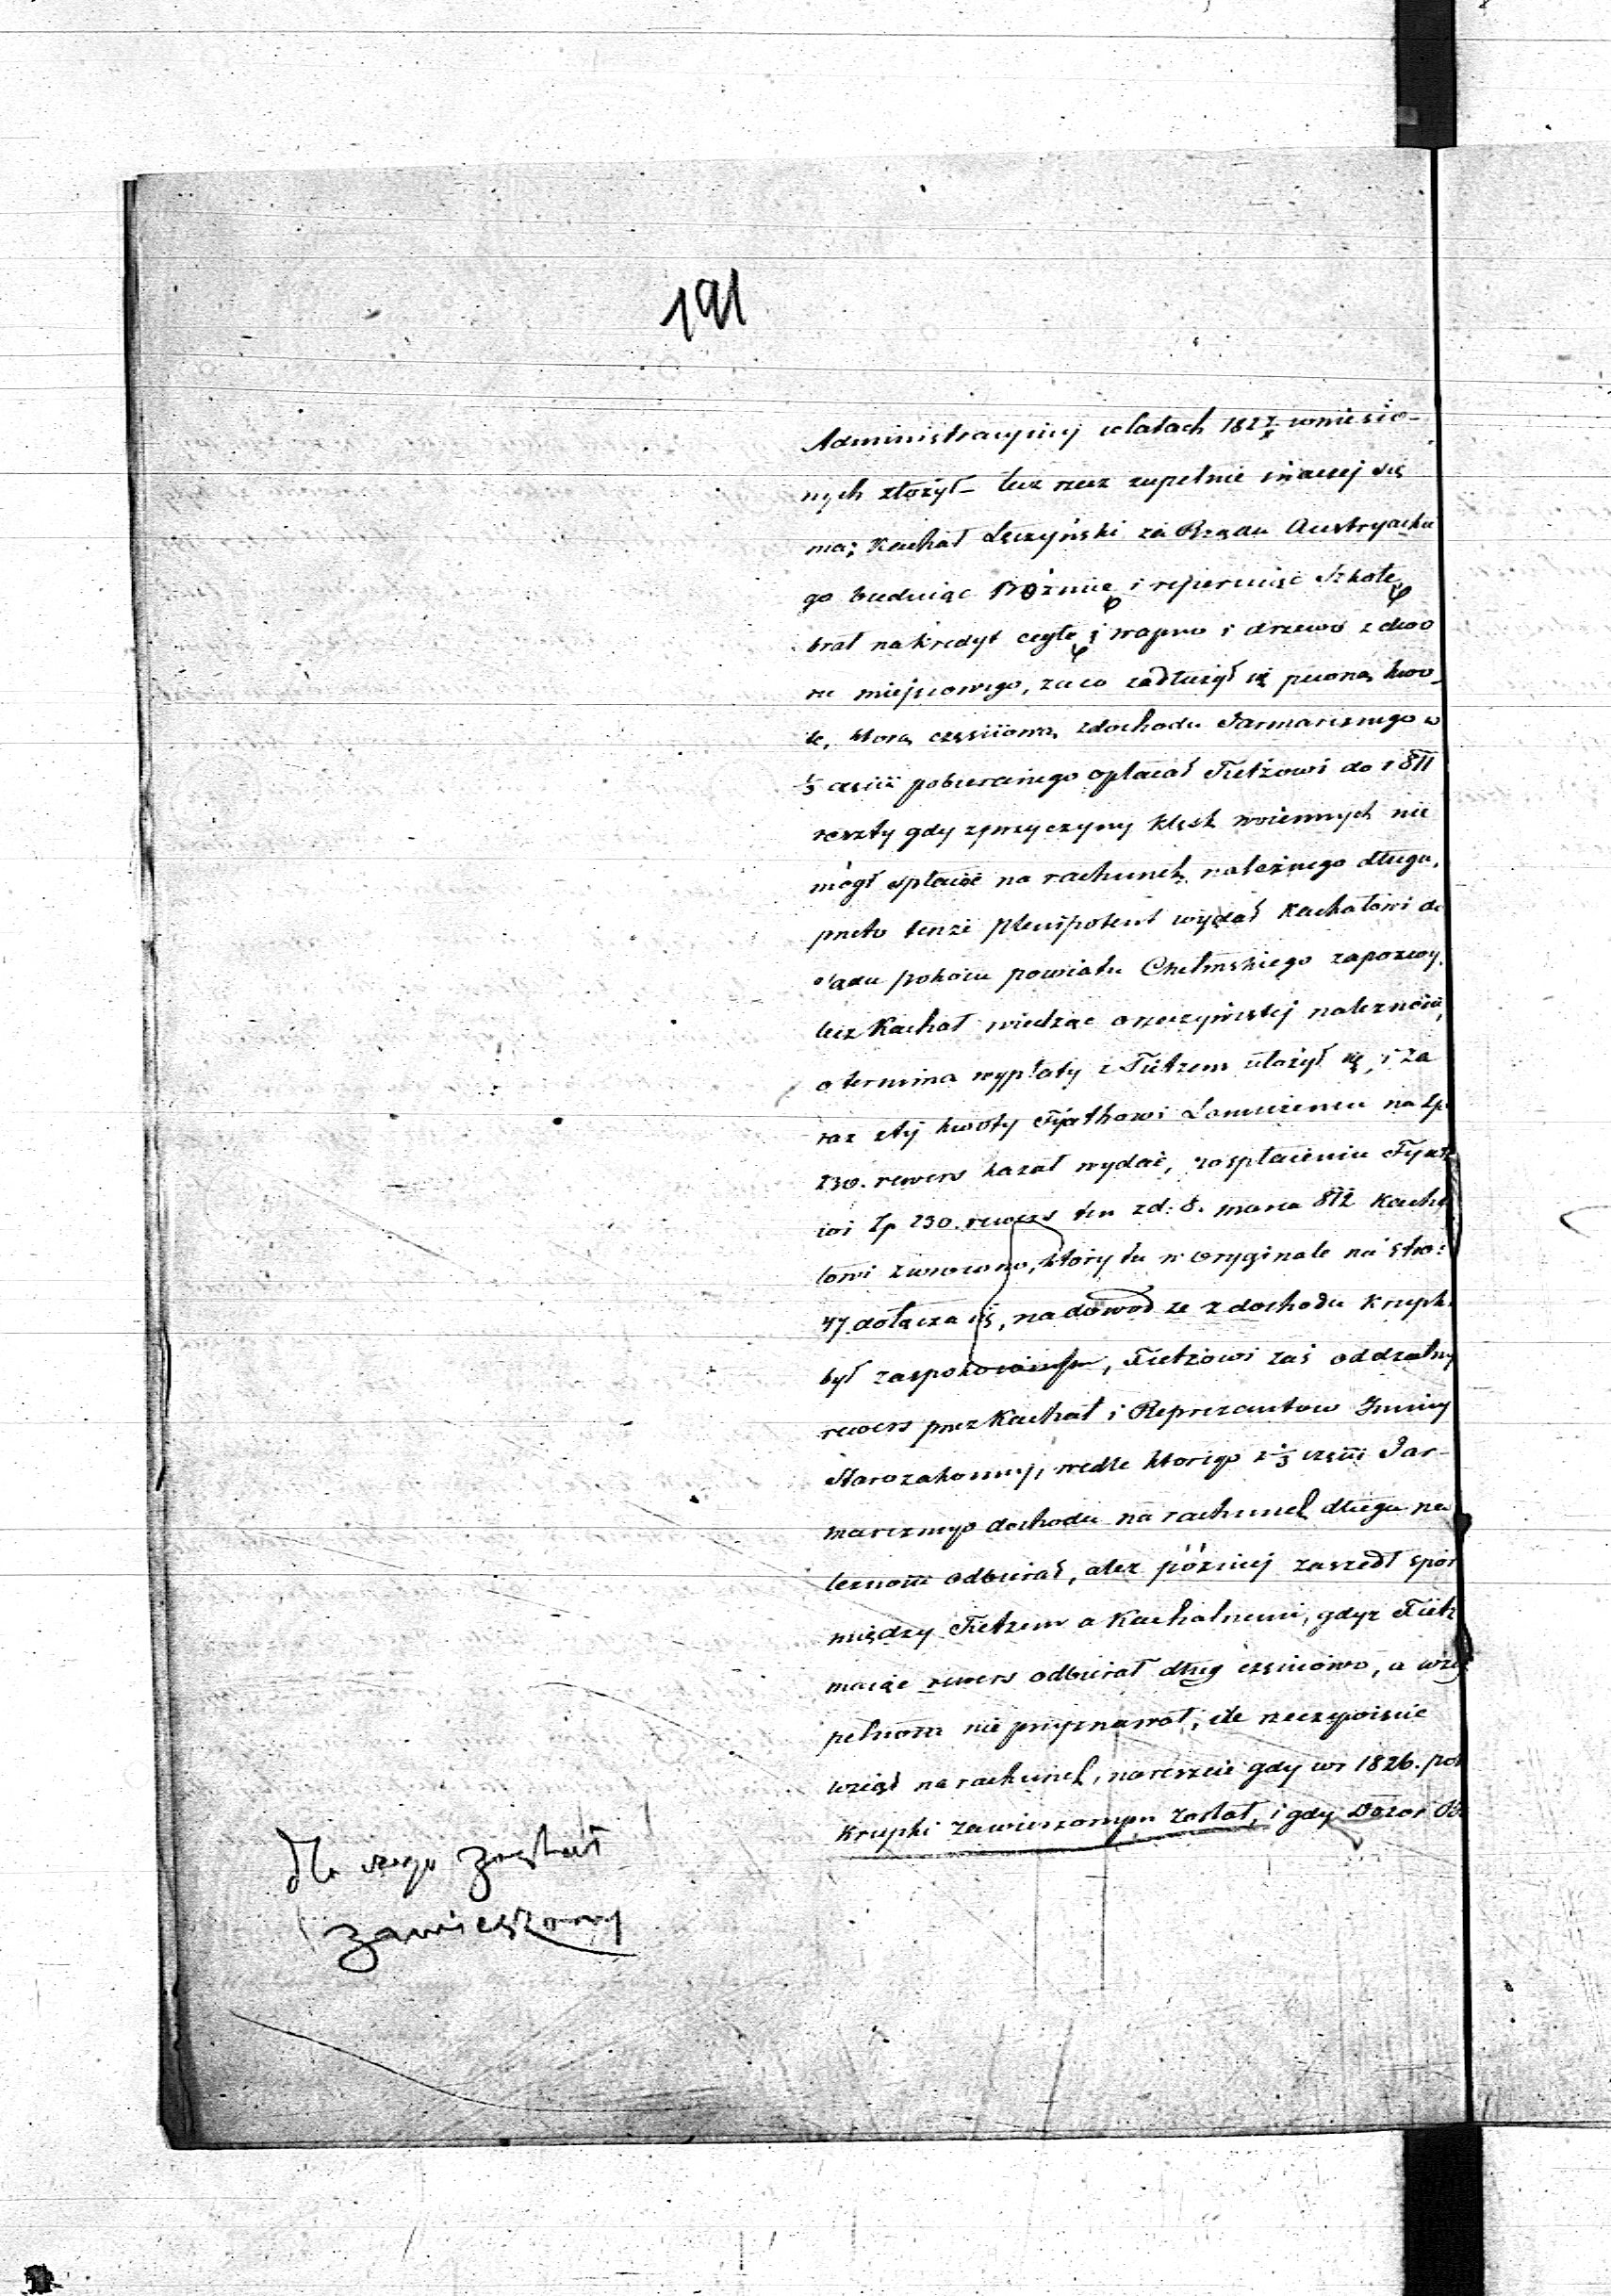 191
Administracyiney w latach 1827/8 wniesio-
nych złożył – lecz rzecz zupełnie inaczej się
ma; Kachał Łęczyński za Rządu Austryackie
go buduiąc Bóżnię i reperuiąc Szkołę
brał na kredyt cegłę i wapno i drzewo z dwo
ru miejscowego, za co zadłużył się pewną kwo-
tę, którą częściową z dochodu Jarmarcznego w
1/3 części pobieranego opłacał Fietzowi do r 811
reszty gdy z przyczyny klęsk woiennych nie
mógł spłacić na rachunek należnego długu,
przeto tenże Plenipotent wydał Kachałowi do
Sądu pokoiu powiatu Chełmskiego zapozwy,
lecz Kachał wiedząc o rzeczywistej należności,
o termina wypłaty z Fietzem ułożył się, i za
raz z tej kwoty na Zp
230. rewers kazał wydać, po spłaceniu
wi Zp 230. rewers ten z d: 8. marca 812 Kacha
łowi zwrocono, który tu w Oryginale na stro:
47 dołącza się, na dowód że z dochodu Krupk.
był zaspokoionym, Fietzowi zaś oddzielny
rewers przez Kachał i Reprezentow Gminy
Starozakonnej, wedle którego z 1/3 części Jar-
marcznego dochodu na rachunek długu na
leżności odbierał, ale że później zaszedł spór
między Fietzem a Kachalnemi, gdyż Fietz
maiąc rewers odbierał dług częściowo, a w zu
pełności nie przyznawał, ile rzeczywiście
wziął na rachunek, nareszcie gdy w r 1826. pob
Krupki zawieszonym został, i gdy Dozor Bo
Dla czego został
zawieszony